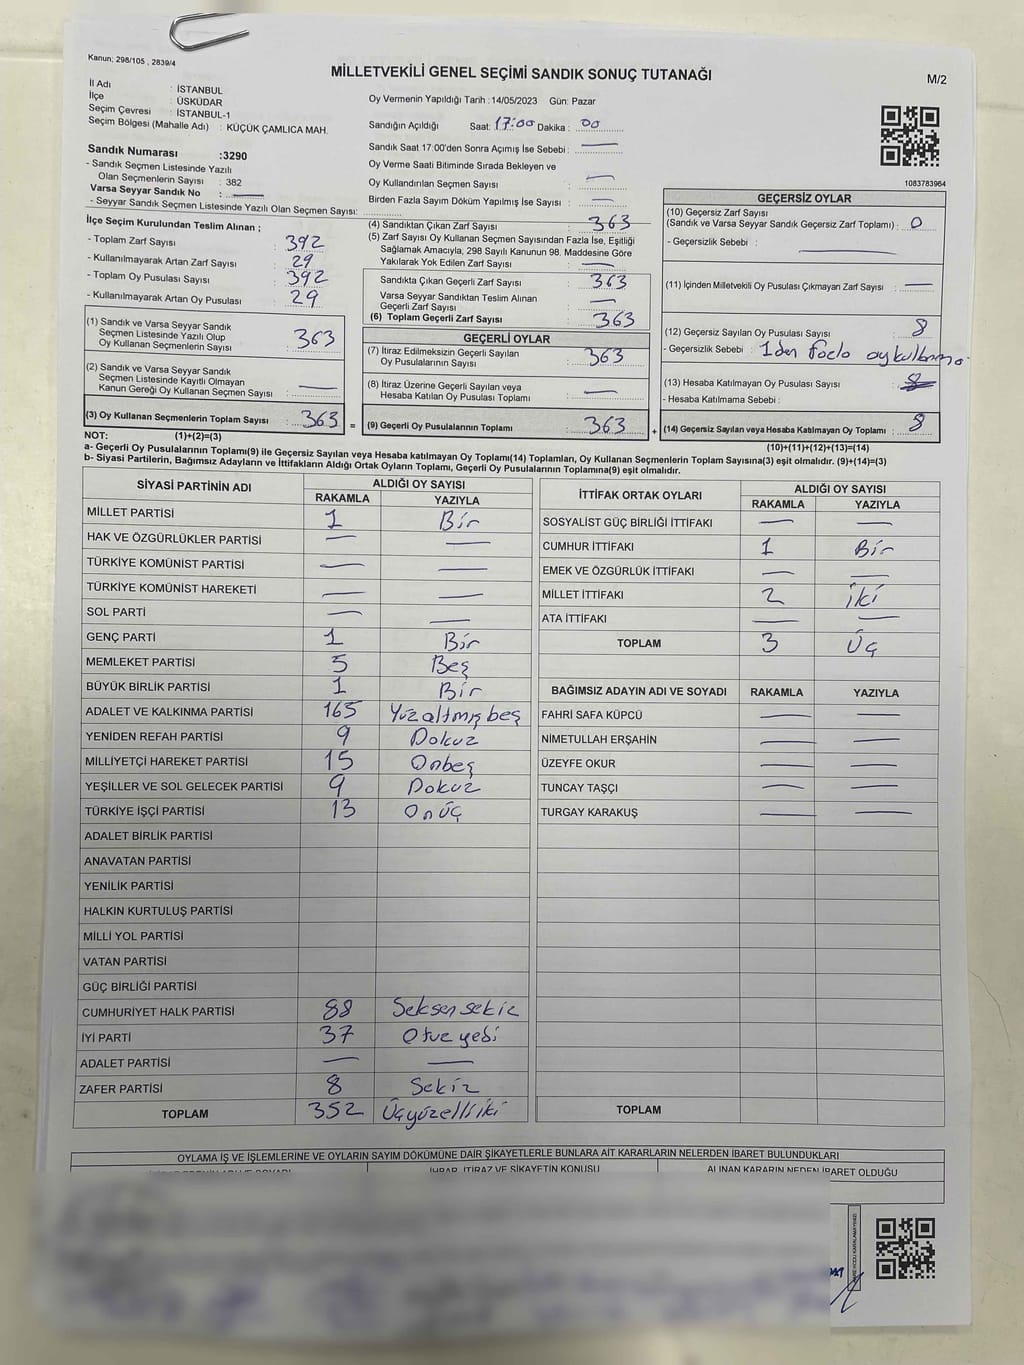 Kanun: 298/105 , 2839/4
MİLLETVEKİLİ GENEL SEÇİMİ SANDIK SONUÇ TUTANAĞI
M/2
İl Adı : İSTANBUL
İlçe : ÜSKÜDAR
Seçim Çevresi : İSTANBUL-1
Seçim Bölgesi (Mahalle Adı) : KÜÇÜK ÇAMLICA MAH.
Sandık Numarası :3290
- Sandık Seçmen Listesinde Yazılı
Olan Seçmenlerin Sayısı : 382
Varsa Seyyar Sandık No : —
- Seyyar Sandık Seçmen Listesinde Yazılı Olan Seçmen Sayısı:
Oy Vermenin Yapıldığı Tarih :14/05/2023 Gün: Pazar
Sandığın Açıldığı Saat: 17:00 Dakika : 00
Sandık Saat 17:00'den Sonra Açımış İse Sebebi : —
Oy Verme Saati Bitiminde Sırada Bekleyen ve
Oy Kullandırılan Seçmen Sayısı : —
Birden Fazla Sayım Döküm Yapılmış İse Sayısı : —
1083783964
İlçe Seçim Kurulundan Teslim Alınan ;
- Toplam Zarf Sayısı : 392
- Kullanılmayarak Artan Zarf Sayısı : 29
- Toplam Oy Pusulası Sayısı : 392
- Kullanılmayarak Artan Oy Pusulası : 29
(1) Sandık ve Varsa Seyyar Sandık
Seçmen Listesinde Yazılı Olup
Oy Kullanan Seçmenlerin Sayısı : 363
(2) Sandık ve Varsa Seyyar Sandık
Seçmen Listesinde Kayıtlı Olmayan
Kanun Gereği Oy Kullanan Seçmen Sayısı : —
(3) Oy Kullanan Seçmenlerin Toplam Sayısı : 363 =
(4) Sandıktan Çıkan Zarf Sayısı : 363
(5) Zarf Sayısı Oy Kullanan Seçmen Sayısından Fazla İse, Eşitliği
Sağlamak Amacıyla, 298 Sayılı Kanunun 98. Maddesine Göre
Yakılarak Yok Edilen Zarf Sayısı : —
Sandıkta Çıkan Geçerli Zarf Sayısı : 363
Varsa Seyyar Sandıktan Teslim Alınan
Geçerli Zarf Sayısı : —
(6) Toplam Geçerli Zarf Sayısı : 363
GEÇERLİ OYLAR
(7) İtiraz Edilmeksizin Geçerli Sayılan
Oy Pusulalarının Sayısı : 363
(8) İtiraz Üzerine Geçerli Sayılan veya
Hesaba Katılan Oy Pusulası Toplamı : —
(9) Geçerli Oy Pusulalarının Toplamı : 363 +
GEÇERSİZ OYLAR
(10) Geçersiz Zarf Sayısı
(Sandık ve Varsa Seyyar Sandık Geçersiz Zarf Toplamı) : 0
- Geçersizlik Sebebi : —
(11) İçinden Milletvekili Oy Pusulası Çıkmayan Zarf Sayısı : —
(12) Geçersiz Sayılan Oy Pusulası Sayısı : 8
- Geçersizlik Sebebi : 1den fazla oy kullanma
(13) Hesaba Katılmayan Oy Pusulası Sayısı :
- Hesaba Katılmama Sebebi :
(14) Geçersiz Sayılan veya Hesaba Katılmayan Oy Toplamı : 8
NOT: (1)+(2)=(3) (10)+(11)+(12)+(13)=(14)
a- Geçerli Oy Pusulalarının Toplamı(9) ile Geçersiz Sayılan veya Hesaba Katılmayan Oy Toplamı(14) Toplamları, Oy Kullanan Seçmenlerin Toplam Sayısına(3) eşit olmalıdır. (9)+(14)=(3)
b- Siyasi Partilerin, Bağımsız Adayların ve İttifakların Aldığı Ortak Oyların Toplamı, Geçerli Oy Pusulalarının Toplamına(9) eşit olmalıdır.
SİYASİ PARTİNİN ADI ALDIĞI OY SAYISI
RAKAMLA YAZIYLA
MİLLET PARTİSİ 1 Bir
HAK VE ÖZGÜRLÜKLER PARTİSİ — —
TÜRKİYE KOMÜNİST PARTİSİ — —
TÜRKİYE KOMÜNİST HAREKETİ — —
SOL PARTİ — —
GENÇ PARTİ 1 Bir
MEMLEKET PARTİSİ 5 Beş
BÜYÜK BİRLİK PARTİSİ 1 Bir
ADALET VE KALKINMA PARTİSİ 165 Yüzaltmış beş
YENİDEN REFAH PARTİSİ 9 Dokuz
MİLLİYETÇİ HAREKET PARTİSİ 15 Onbeş
YEŞİLLER VE SOL GELECEK PARTİSİ 9 Dokuz
TÜRKİYE İŞÇİ PARTİSİ 13 Onüç
ADALET BİRLİK PARTİSİ
ANAVATAN PARTİSİ
YENİLİK PARTİSİ
HALKIN KURTULUŞ PARTİSİ
MİLLİ YOL PARTİSİ
VATAN PARTİSİ
GÜÇ BİRLİĞİ PARTİSİ
CUMHURİYET HALK PARTİSİ 88 Seksen sekiz
İYİ PARTİ 37 Otuz yedi
ADALET PARTİSİ — —
ZAFER PARTİSİ 8 Sekiz
TOPLAM 352 Üçyüzelliiki
İTTİFAK ORTAK OYLARI ALDIĞI OY SAYISI
RAKAMLA YAZIYLA
SOSYALİST GÜÇ BİRLİĞİ İTTİFAKI — —
CUMHUR İTTİFAKI 1 Bir
EMEK VE ÖZGÜRLÜK İTTİFAKI — —
MİLLET İTTİFAKI 2 iki
ATA İTTİFAKI — —
TOPLAM 3 Üç
BAĞIMSIZ ADAYIN ADI VE SOYADI RAKAMLA YAZIYLA
FAHRİ SAFA KÜPCÜ — —
NİMETULLAH ERŞAHİN — —
ÜZEYFE OKUR — —
TUNCAY TAŞÇI — —
TURGAY KARAKUŞ — —
TOPLAM
OYLAMA İŞ VE İŞLEMLERİNE VE OYLARIN SAYIM DÖKÜMÜNE DAİR ŞİKAYETLERLE BUNLARA AİT KARARLARIN NELERDEN İBARET BULUNDUKLARI
İHBAR, İTİRAZ VE ŞİKAYETİN KONUSU ALINAN KARARIN NEDEN İBARET OLDUĞU